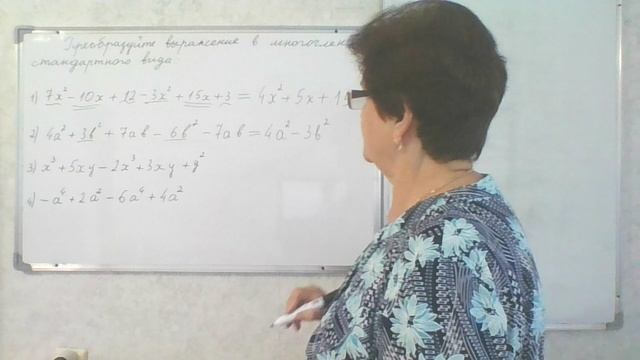 Преобразуйте выражение в многочлен
стандартного вида:
1) 7x² - 10x + 12 - 3x² + 15x + 3 = 4x² + 5x + 1
2) 4a² + 3b² + 7ab - 6b² - 7ab = 4a² - 3b²
3) x³ + 5xy - 2x³ + 3xy + y²
4) - a⁴ + 2a² - 6a⁴ + 4a²